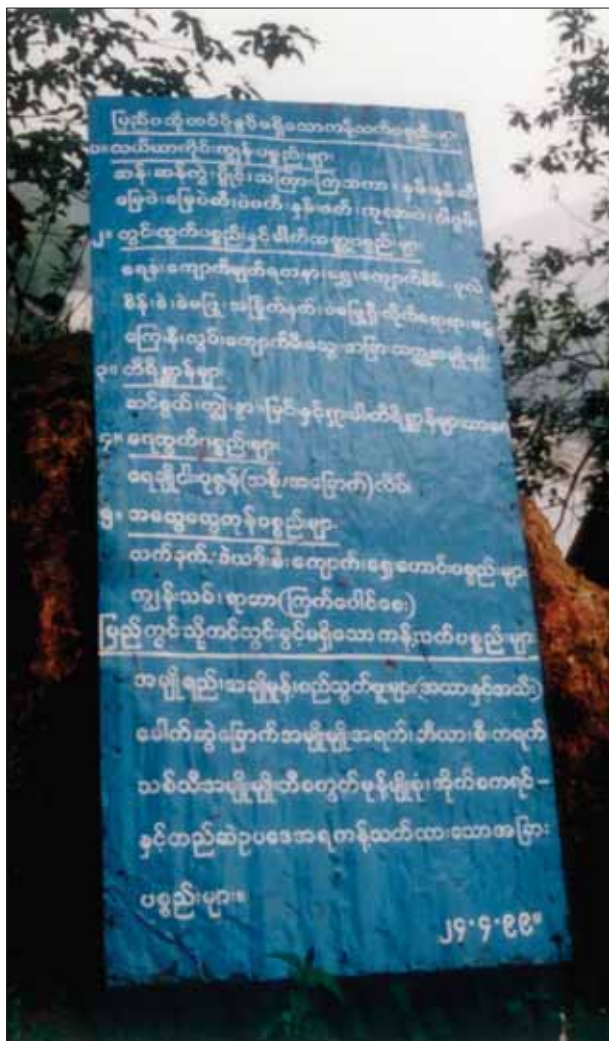 ပြည်ပသို့တင်ပို့ခွင့်မရှိသောကန့်သတ်ပစ္စည်းများ
၁။ လယ်ယာကိုင်းကျွန်းပစ္စည်းများ
ဆန်၊ ဆန်ကွဲ၊ သကြား၊ နှမ်း၊
မြေပဲ၊ မြေပဲဆီ၊ ဝါဂွမ်း
၂။ တွင်းထွက်ပစ္စည်းနှင့်
ရေနံ၊ ကျောက်မျက်ရတနာ၊ ရွှေ၊ ကျောက်စိမ်း၊ ပုလဲ
စိန်၊ ခဲ၊ ခဲမဖြူ၊ အဖြိုက်နက်၊
ကြေးနီ၊ ကျောက်မီးသွေး၊ အခြားသတ္တုအမျိုးမျိုး
၃။ တိရိစ္ဆာန်များ
ဆင်စွယ်၊ ကျွဲ၊ နွား၊ မြင်းနှင့်ရှားပါးတိရိစ္ဆာန်များ
၄။ ရေထွက်ပစ္စည်းများ
ရေချိုငါး၊ ပုဇွန်(အစို၊အခြောက်)
၅။ အထွေထွေကုန်ပစ္စည်းများ
လက်နက်၊ ခဲယမ်း၊ မီးကျောက်၊ ရှေးဟောင်းပစ္စည်းများ
ကျွန်းသစ်၊ ရာဘာ(ကြက်ပေါင်စေး)
ပြည်တွင်းသို့တင်သွင်းခွင့်မရှိသောကန့်သတ်ပစ္စည်းများ
အချိုရည်၊ အချိုမှုန့်၊ စည်သွတ်ဗူးများ(အသားနှင့်အသီး)
ခေါက်ဆွဲခြောက်အမျိုးမျိုး၊ အရက်၊ ဘီယာ၊ စီးကရက်
သစ်သီးအမျိုးမျိုး၊ ဘီစကွတ်မုန့်မျိုးစုံ၊
နှင့်တည်ဆဲဥပဒေအရကန့်သတ်ထားသောအခြား
ပစ္စည်းများ။
၂၄.၄.၉၉။